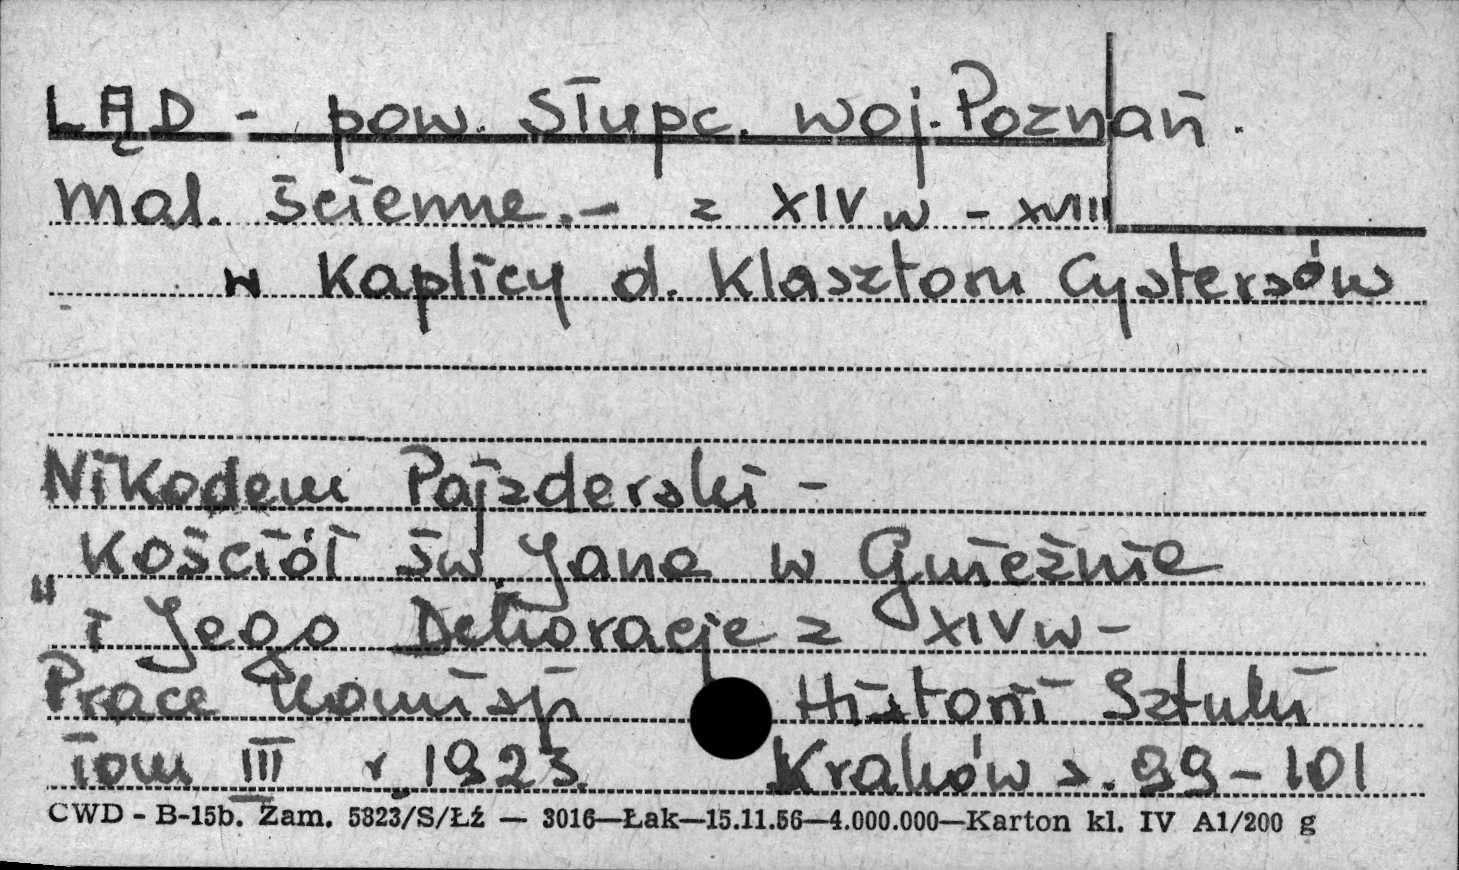 LĄD - pow. Słupc. woj. Poznań.
mal. ścienne. - z XIV w - XVIII
w Kaplicy d. Klasztoru Cystersów
Nikodem Pajzderski -
Kościół św. Jana w Gnieźnie
" i Jego Dekoracje z XIV w -
Prace Komisji Historii Sztuki
Tom III r. 1923. Kraków s. 99 - 101
CWD - B-15b. Zam. 5323/S/Łź — 3016—Łak—15.11.56—4.000.000—Karton kl. IV A1/200 g